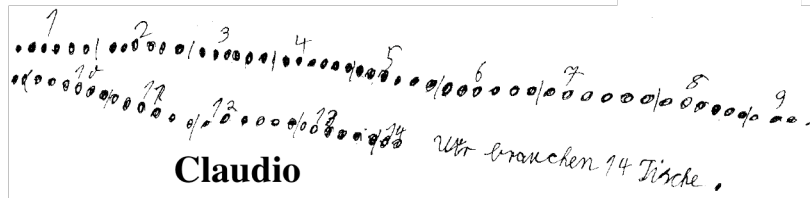 1 2 3 4 5 6 7 8 9
10 11 12 13 14
Wir brauchen 14 Tische.
Claudio